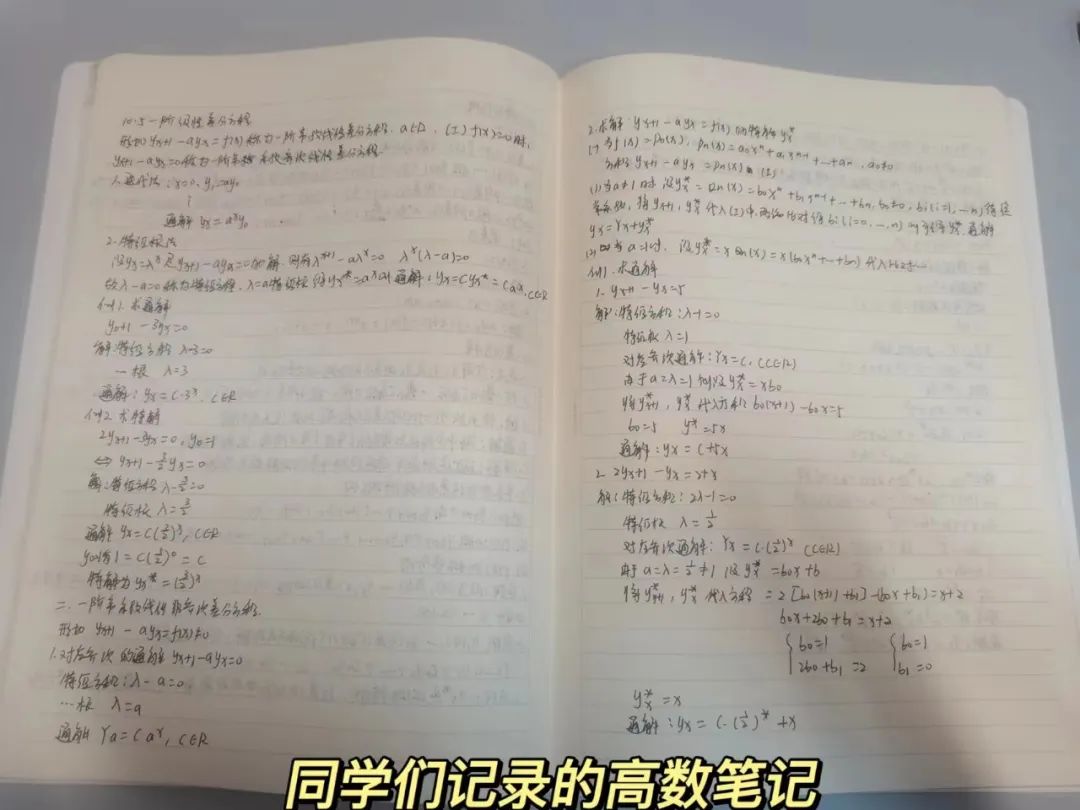 10.5 一阶线性差分方程
形如 yx+1 - ayx = f(x) 称为一阶常系数线性差分方程. a∈R, (1) f(x)=0时,
yx+1 - ayx=0称为一阶常系数齐次线性差分方程.
1. 迭代法: x=0, y1=ay0
⋮
通解 yx = a^x y0
2. 特征根法
设yx=λ^x是yx+1 - ayx=0的解. 则有λ^x+1 - aλ^x=0 λ^x(λ-a)=0
故λ-a=0称为特征方程. λ=a特征根 得yx*=a^x 通解: yx=Cyx*=Ca^x, C∈R
例1. 求通解
yx+1 - 3yx=0
解:特征方程 λ-3=0
一根 λ=3
通解: yx=C·3^x, C∈R
例2. 求特解
2yx+1 - 3yx=0, y0=1
⇔ yx+1 - 3/2 yx=0
解:特征方程 λ-3/2=0
特征根 λ=3/2
通解 yx=C(3/2)^x, C∈R
特解为 yx*=(3/2)^x
二. 一阶常系数线性非齐次差分方程.
形如 yx+1 - ayx=f(x)≠0
1. 对应齐次的通解 yx+1-ayx=0
特征方程: λ-a=0
…根 λ=a
通解 Ya=Ca^x, C∈R
2. 求解: yx+1 - ayx = f(x) 的特解yx*
(1) 当f(x)=Pn(x), Pn(x)=a0x^n+a1x^n-1+…+an, a0≠0
方程 yx+1 - ayx = Pn(x) (1)
(1)当a≠1时 设yx*=Qn(x)=b0x^n+b1x^n-1+…+bn, b0≠0, bi(i=1,…n)待定
yx=Yx+yx*
(2) 当a=1时. 设yx*=xQn(x)=x(b0x^n+…+bn) 代入
例1. 求通解
1. yx+1 - yx=5
解:特征方程: λ-1=0
特征根 λ=1
对应齐次通解: Yx=C, (C∈R)
由于a=λ=1 则设yx*=xb0
将yx+1*, yx*代入方程 b0(x+1)-b0x=5
b0=5 yx*=5x
通解: yx=C+5x
2. 2yx+1 - yx=2+x
解: 特征方程: 2λ-1=0
特征根 λ=1/2
对应齐次通解: Yx=C·(1/2)^x (C∈R)
由于a=λ=1/2≠1 设yx*=b0x+b
将yx+1*, yx*代入方程 = 2[b0(x+1)+b1]-(b0x+b1)=x+2
b0x+2b0+b1=x+2
{b0=1 {b0=1
{2b0+b1=2 {b1=0
yx*=x
通解: yx=C·(1/2)^x+x
同学们记录的高数笔记